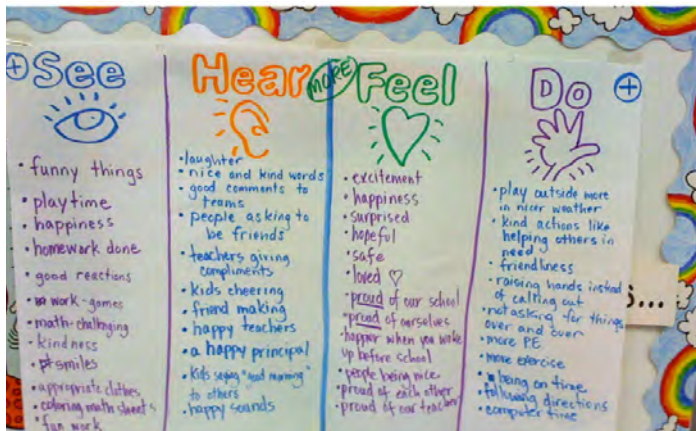 See
funny things
playtime
happiness
homework done
good reactions
work-games
math-challenging
kindness
smiles
appropriate clothes
coloring math sheets
fun work
Hear
laughter
nice and kind words
good comments to
teams
people asking to
be friends
teachers giving
compliments
kids cheering
friend making
happy teachers
a happy principal
kids saying "good morning"
to others
happy sounds
MORE
Feel
excitement
happiness
surprised
hopeful
safe
loved ♡
proud of our school
proud of ourselves
happier when you wake
up before school
people being nice
proud of each other
proud of our teacher
Do
play outside more
in nicer weather
kind actions like
helping others in
need
friendliness
raising hands instead
of calling out
not asking for things
over and over
more PE
more exercise
being on time
following directions
computer time
S...